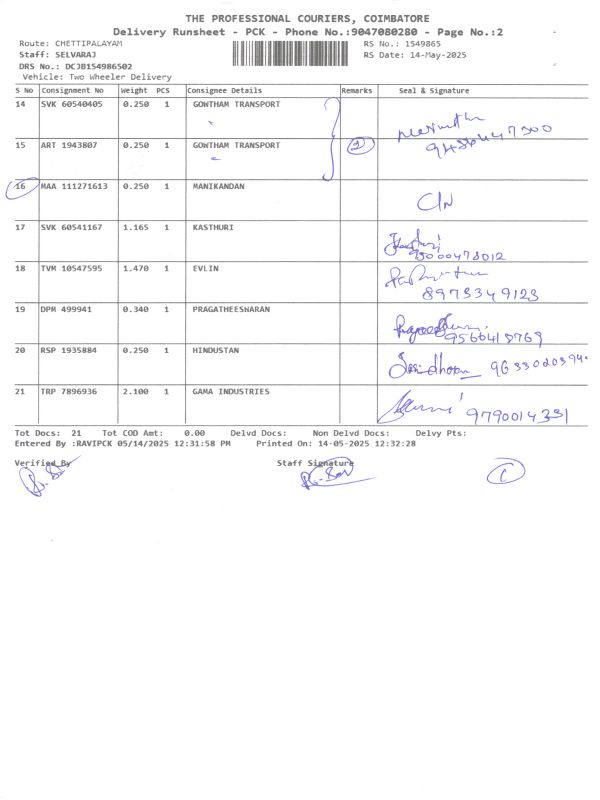 THE PROFESSIONAL COURIERS, COIMBATORE
Delivery Runsheet - PCK - Phone No.:9047080280 - Page No.:2
Route: CHETTIPALAYAM RS No.: 1549865
Staff: SELVARAJ RS Date: 14-May-2025
DRS No.: DCJB154986502
Vehicle: Two Wheeler Delivery
S No Consignment No Weight PCS Consignee Details Remarks Seal & Signature
14 SVK 60540405 0.250 1 GOWTHAM TRANSPORT
15 ART 1943807 0.250 1 GOWTHAM TRANSPORT 2
16 MAA 111271613 0.250 1 MANIKANDAN
17 SVK 60541167 1.165 1 KASTHURI
95000478012
18 TVM 10547595 1.470 1 EVLIN
8973349123
19 DPM 499941 0.340 1 PRAGATHEESWARAN
9566418769
20 RSP 1935884 0.250 1 HINDUSTAN
21 TRP 7896936 2.100 1 GAMA INDUSTRIES 9790014331
Tot Docs: 21 Tot COD Amt: 0.00 Delvd Docs: Non Delvd Docs: Delvy Pts:
Entered By :RAVIPCK 05/14/2025 12:31:58 PM Printed On: 14-05-2025 12:32:28
Verified By Staff Signature C